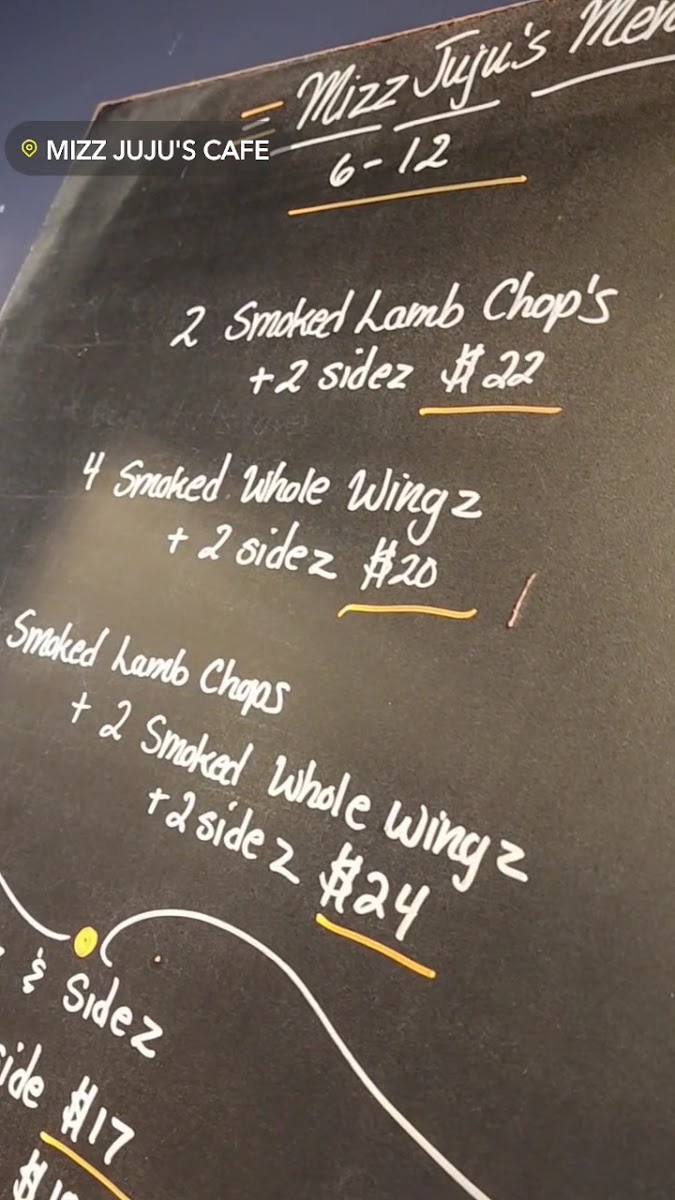 = Mizz Juju's Men
MIZZ JUJU'S CAFE
6-12
2 Smoked Lamb Chop's
+2 sidez $22
4 Smoked Whole Wingz
+ 2 sidez $20
Smoked Lamb Chops
+ 2 Smoked Whole Wingz
+2 sidez $24
& Sidez
ide $17